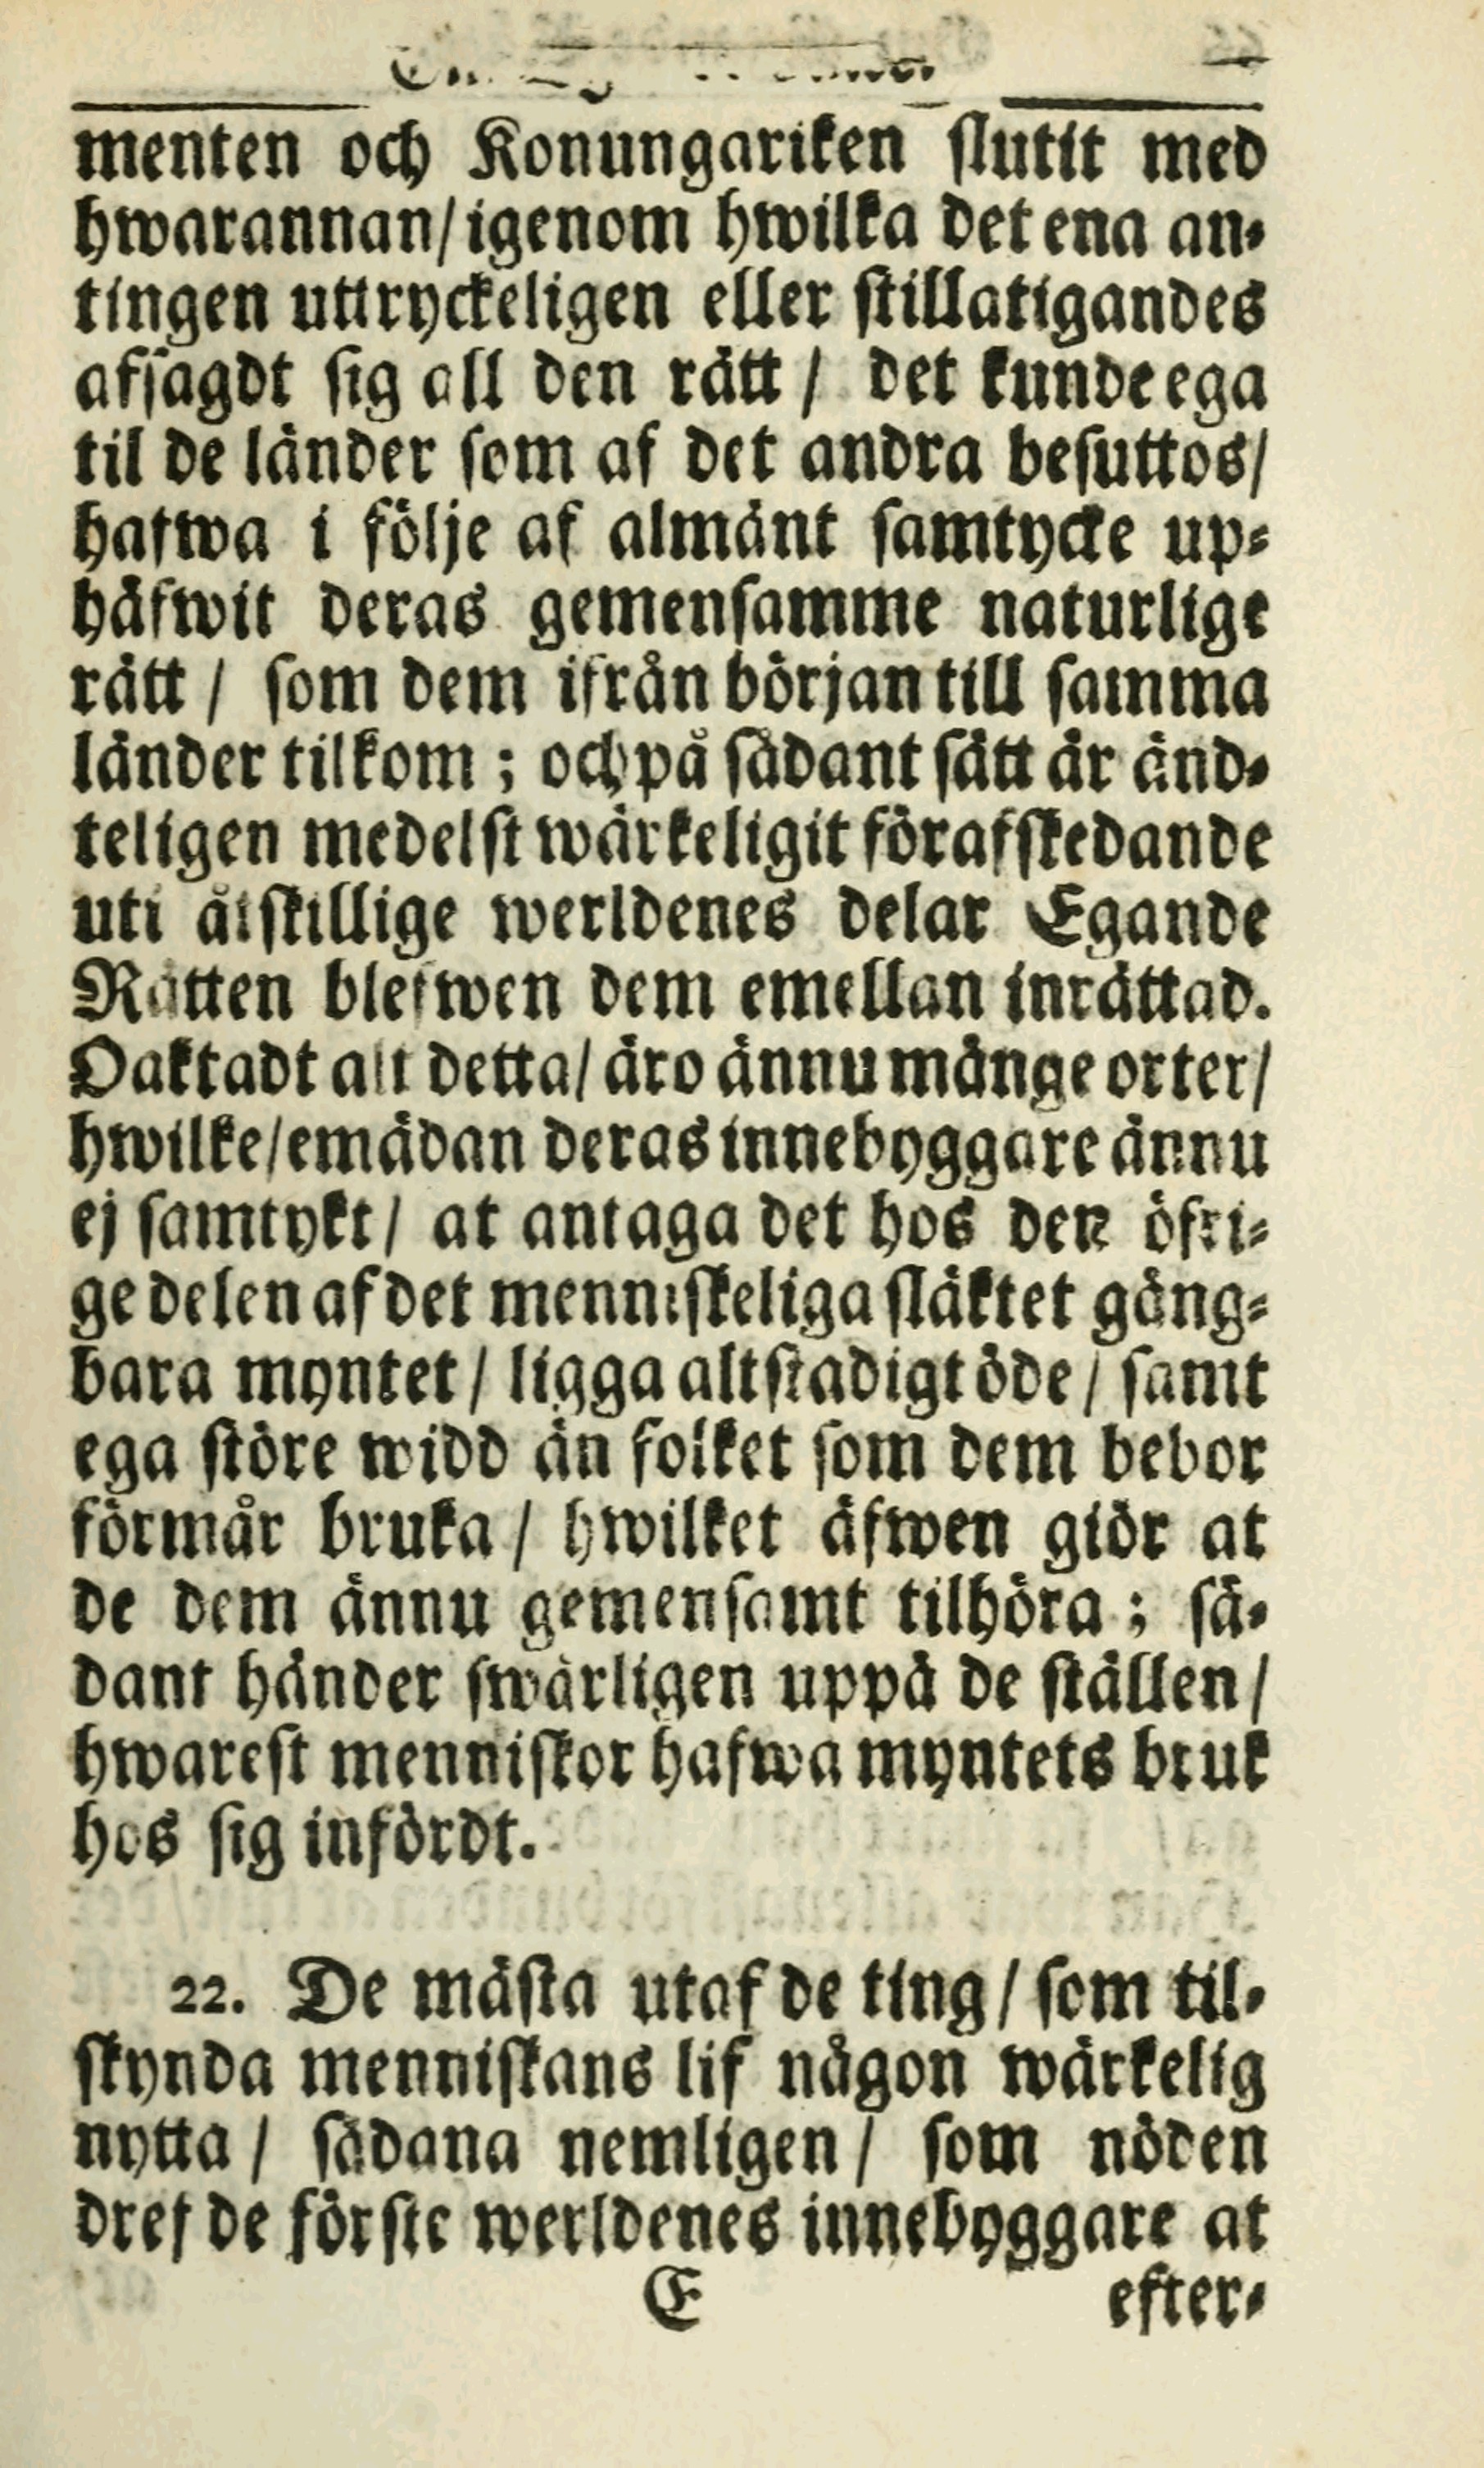 menten och Konungariken slutit med
hwarannan/ igenom hwilka det ena an-
tingen uttryckeligen eller stillatigandes
afsagdt sig all den rätt / det kunde ega
til de länder som af det andra besuttos/
hafwa i följe af almänt samtycke up-
häfwit deras gemensamme naturlige
rätt / som dem ifrån början till samma
länder tilkom ; och på sådant sätt är änd-
teligen medelst wärkeligit förafskedande
uti åtskillige werldenes delar Egande
Rätten blefwen dem emellan inrättad.
Oaktadt alt detta/ äro ännu månge orter/
hwilke/ emädan deras innebyggare ännu
ej samtykt/ at antaga det hos den öfri-
ge delen af det menniskeliga släktet gång-
bara myntet / ligga altstadigt öde / samt
ega störe widd än folket som dem bebor
förmår bruka / hwilket äfwen giör at
de dem ännu gemensamt tilhöra ; så-
dant händer swårligen uppå de ställen/
hwarest menniskor hafwa myntets bruk
hos sig infördt.
22. De mästa utaf de ting / som til-
skynda menniskans lif någon wärkelig
nytta / sådana nemligen / som nöden
dref de förste werldenes innebyggare at
E efter-